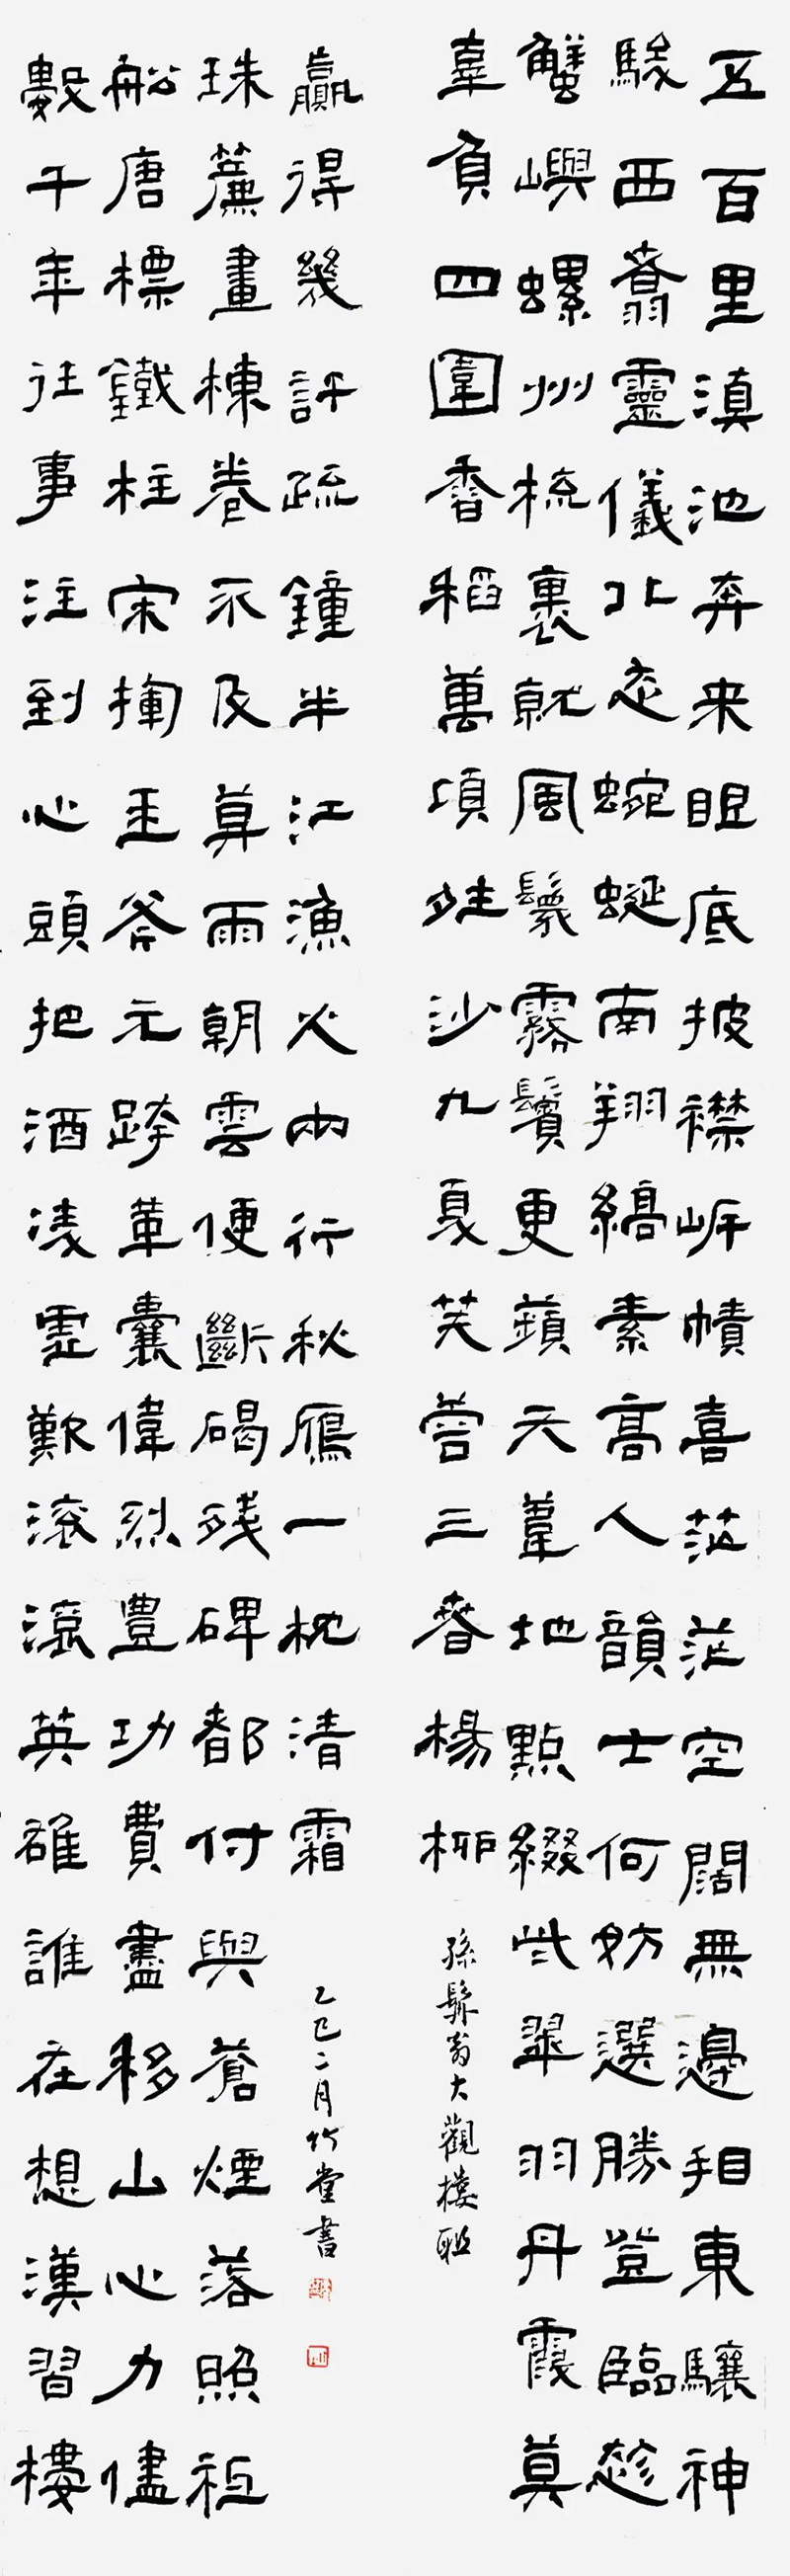 五百里滇池奔来眼底披襟岸幘喜茫茫空闊無邊看東驤神
駿西翥靈儀北走蜿蜒南翔縞素高人韻士何妨選勝登臨趁
蟹嶼螺州梳裹就風鬟霧鬢更蘋天葦地點綴些翠羽丹霞莫
辜負四圍香稻萬頃晴沙九夏芙蓉三春楊柳
孫髯翁大觀樓聯
數千年往事注到心頭把酒凌虛歎滾滾英雄誰在想漢習樓
船唐標鐵柱宋揮玉斧元跨革囊偉烈豐功費盡移山心力儘
珠簾畫棟卷不及暮雨朝雲便斷碣殘碑都付與蒼煙落照祗
贏得幾許疏鐘半江漁火兩行秋雁一枕清霜
乙巳二月竹堂書